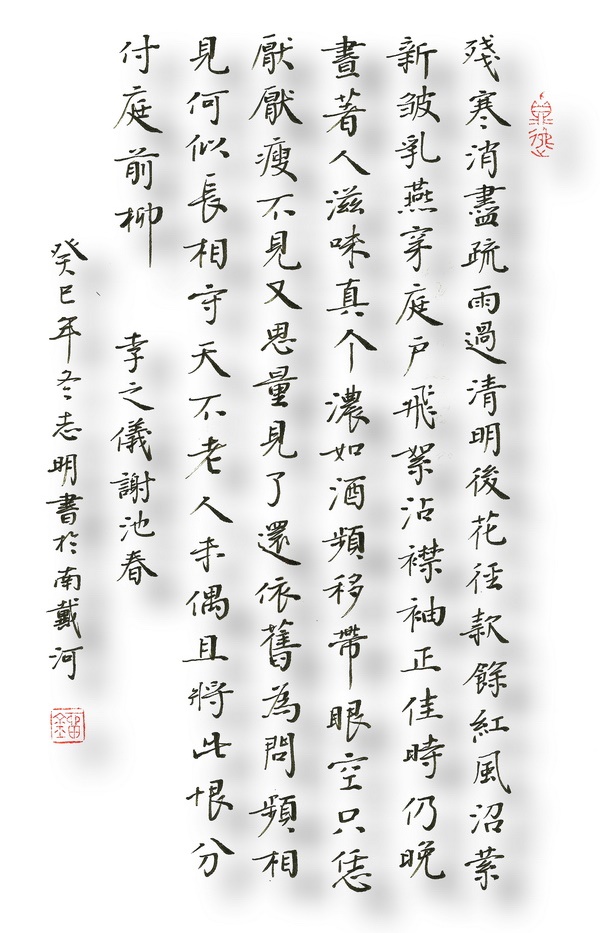 殘寒消盡疏雨過清明後花徑款餘紅風沼縈
新皺乳燕穿庭戶飛絮沾襟袖正佳時仍晚
晝著人滋味真个濃如酒頻移帶眼空只恁
厭厭瘦不見又思量見了還依舊為問頻相
見何似長相守天不老人未偶且將此恨分
付庭前柳 李之儀謝池春
癸巳年冬志明書於南戴河